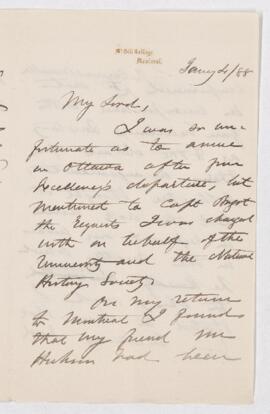 McGill College,
Montreal.
Jany 4/88
My Lord,
I was so un-
fortunate as to arrive
in Ottawa after your
Excellency's departure, but
mentioned to Capt
the requests I was charged
with on behalf of the
University and the Natural
History Society.
On my return
to Montreal I found
that my friend Mr
Hickson had been